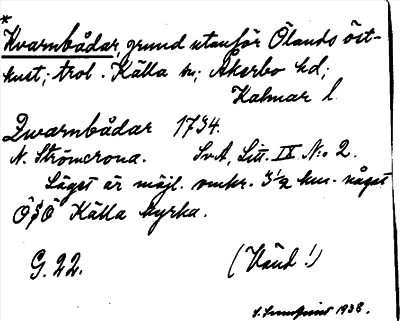 *
Kvarnbådar, grund utanför Ölands öst-
kust; trol. Källa sn; Åkerbo hd;
Kalmar l.
Qwarnbådar 1734.
N. Strömcrona. SvA, Litt. IX N:o 2.
Läget är möjl. omkr. 3 1/2 km. något
ÖSÖ Källa kyrka.
G. 22. (Vänd!)
1938.